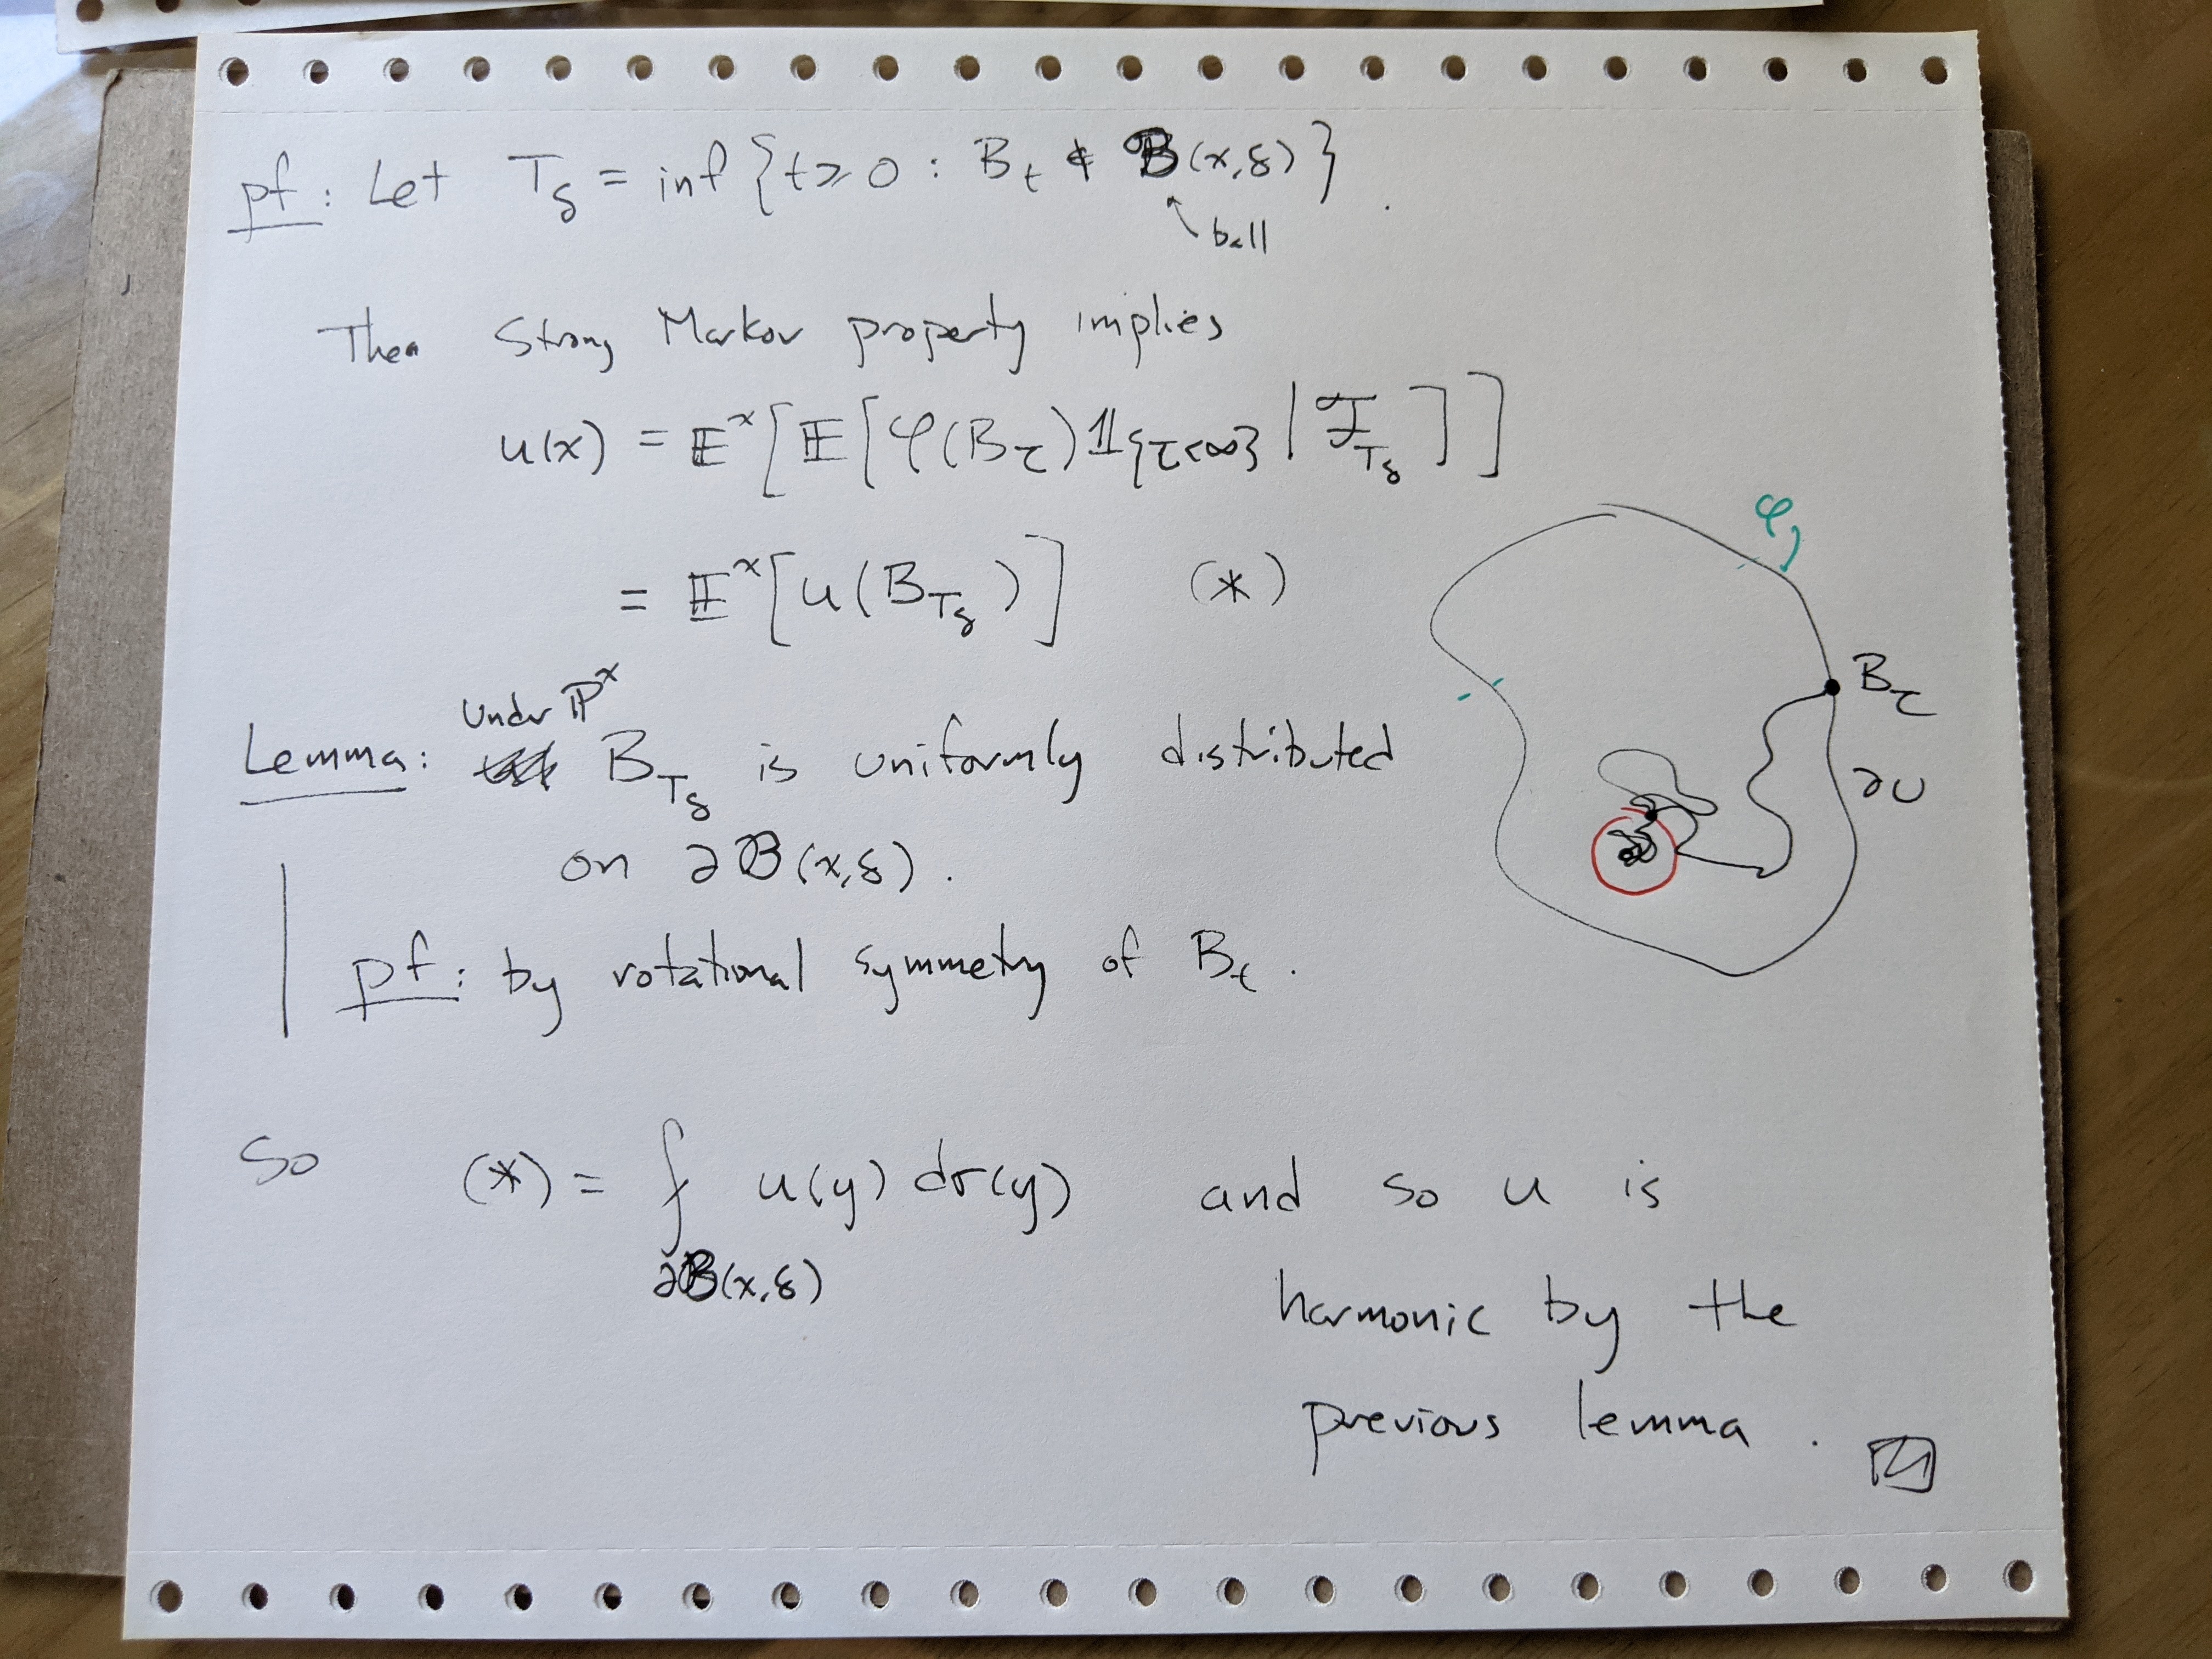 pf: Let T_δ = inf {t ≥ 0 : B_t ∉ B(x,δ)}.
↖ ball
Then Strong Markov property implies
u(x) = 𝔼^x[𝔼[φ(B_τ)𝟙_{τ<∞} | ℱ_{T_δ}]]
= 𝔼^x[u(B_{T_δ})] (*)
φ
B_τ
∂U
Under ℙ^x
Lemma: B_{T_δ} is uniformly distributed
on ∂B(x,δ).
pf: by rotational symmetry of B_t.
So (*) = ⨍ u(y) dσ(y) and so u is
∂B(x,δ)
harmonic by the
previous lemma.